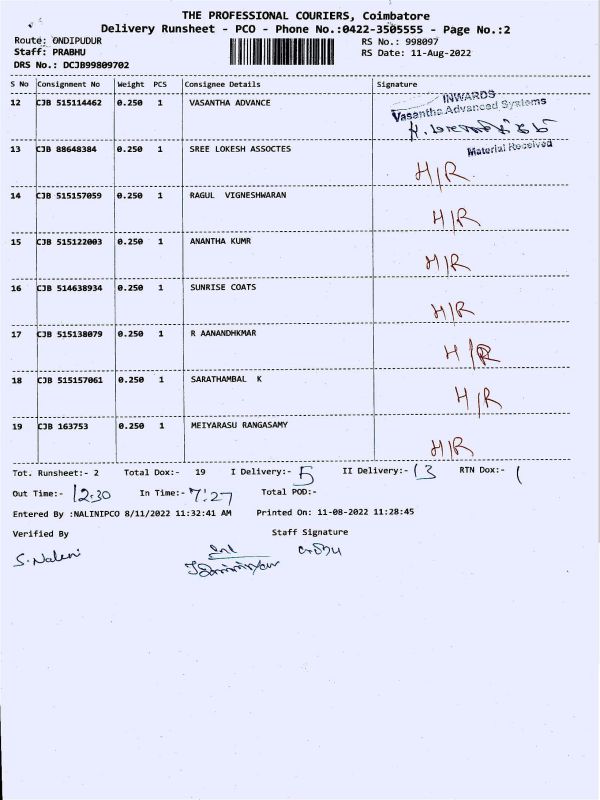 THE PROFESSIONAL COURIERS, Coimbatore
Delivery Runsheet - PCO - Phone No.:0422-3505555 - Page No.:2
Route: ONDIPUDUR RS No.: 998097
Staff: PRABHU RS Date: 11-Aug-2022
DRS No.: DCJB99809702
S No Consignment No Weight PCS Consignee Details Signature
12 CJB 515114462 0.250 1 VASANTHA ADVANCE INWARDS
Vasantha Advanced Systems
Material Received
13 CJB 88648384 0.250 1 SREE LOKESH ASSOCTES H/R
14 CJB 515157059 0.250 1 RAGUL VIGNESHWARAN H/R
15 CJB 515122003 0.250 1 ANANTHA KUMR H/R
16 CJB 514638934 0.250 1 SUNRISE COATS H/R
17 CJB 515138079 0.250 1 R AANANDHKMAR H/R
18 CJB 515157061 0.250 1 SARATHAMBAL K H/R
19 CJB 163753 0.250 1 MEIYARASU RANGASAMY H/R
Tot. Runsheet:- 2 Total Dox:- 19 I Delivery:- 5 II Delivery:- 13 RTN Dox:- 1
Out Time:- 12:30 In Time:- 7:27 Total POD:-
Entered By :NALINIPCO 8/11/2022 11:32:41 AM Printed On: 11-08-2022 11:28:45
Verified By Staff Signature
S. Nalini